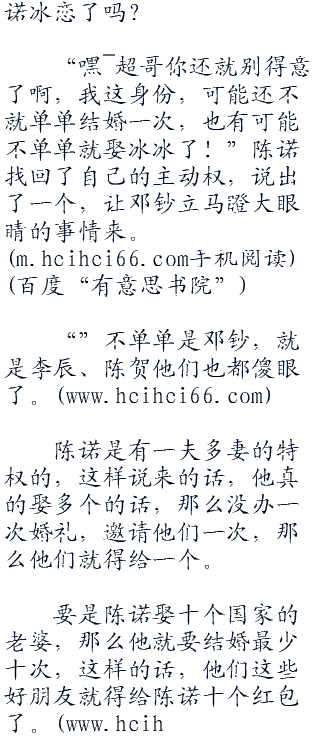 诺冰恋了吗？
“嘿¯超哥你还就别得意
了啊，我这身份，可能还不
就单单结婚一次，也有可能
不单单就娶冰冰了！”陈诺
找回了自己的主动权，说出
了一个，让邓钞立马瞪大眼
睛的事情来。
(m.hcihci66.com手机阅读)
(百度“有意思书院”)
“”不单单是邓钞，就
是李辰、陈贺他们也都傻眼
了。(www.hcihci66.com)
陈诺是有一夫多妻的特
权的，这样说来的话，他真
的娶多个的话，那么没办一
次婚礼，邀请他们一次，那
么他们就得给一个。
要是陈诺娶十个国家的
老婆，那么他就要结婚最少
十次，这样的话，他们这些
好朋友就得给陈诺十个红包
了。(www.hcih